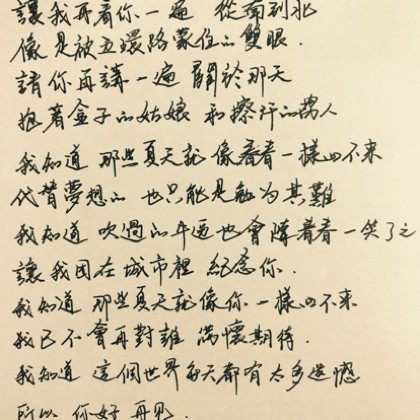 讓我再看你一遍 從南到北
像是被五環路蒙住的雙眼.
請你再講一遍 關於那天
抱著盒子的姑娘 和擦汗的男人
我知道 那些夏天就像青春一樣回不來
代替夢想的 也只能是勉为其難
我知道 吹過的牛逼也會隨青春一笑了之
讓我困在城市裡 紀念你.
我知道 那些夏天就像你一樣回不來
我已不會再對誰 滿懷期待.
我知道 這個世界每天都有太多遺憾
所以 你好 再見.